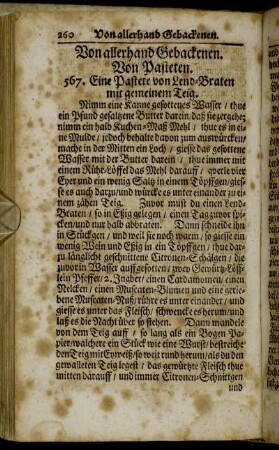 260 Von allerhand Gebackenen.
Von allerhand Gebackenen.
Von Pasteten.
567. Eine Pastete von Lend-Braten
mit gemeinem Teig.
Nimm eine Kanne gesottenes Wasser / thue
ein Pfund gesaltzene Butter darein, daß sie zergehe;
nimm ein halb Kuchen-Maß Mehl / thue es in ei-
ne Mulde / jedoch behalte davon zum auswürcken/
mache in der Mitten ein Loch / giesse das gesottene
Wasser mit der Butter darein / thue immer mit
einem Rühr-Löffel das Mehl darauf / qverle vier
Eyer und ein wenig Saltz in einem Töpffgen/gies-
se es auch darzu/und würcke es unter einander zu ei-
nem zähen Teig. Zuvor must du einen Lend-
Braten / so in Eßig gelegen / einen Tag zuvor spi-
cken/und nur halb abbraten. Dann schneide ihn
in Stückgen / und weil sie noch warm, so giesse ein
wenig Wein und Eßig in ein Töpffgen / thue dar-
zu länglicht geschnittene Citronen-Schälgen / die
zuvor in Wasser auffgesotten / zwey Gewürtz-Löff-
lein Pfeffer / 2. Ingber / einen Cardamomen / einen
Nelcken / einen Muscaten-Blumen und eine gerie-
bene Muscaten-Nuß/rühre es unter einander / und
giesse es unter das Fleisch / schwencke es herum/und
laß es die Nacht über so stehen. Dann mandele
von dem Teig auff / so lang als ein Bogen Pa-
pier/walchere ein Stück wie eine Wurst/bestreiche
den Teig mit Eyweiß/so weit rund herum/als du den
gewalleten Teig legest / das gewürtzte Fleisch thue
mitten darauff / und immer Citronen-Schnittgen
und